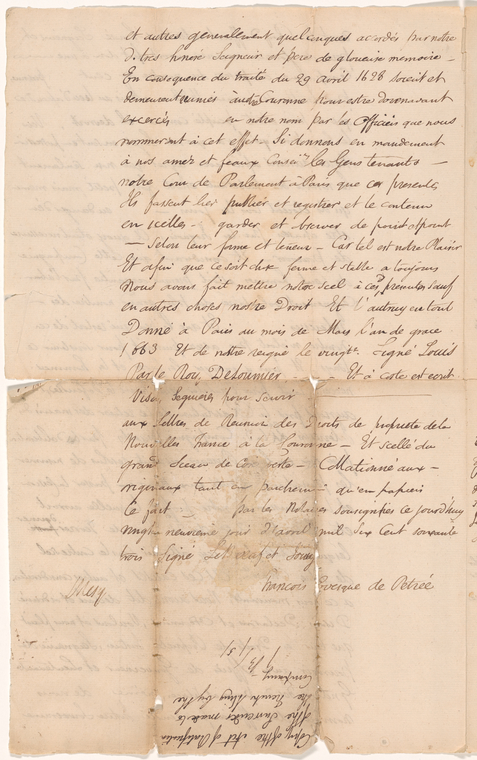 et autres generalement quelconques accordés par notre
d. tres honoré Seigneur et pere de glorieuse memoire -
En consequence du traité du 29 avril 1628 soient et
demeurent reunies à notre Couronne pour estre doresnavant
exercés en notre nom par les Officiers que nous
nommeront à cet effet. Si donnons en mandement
à nos amez et feaux Cons.rs les Gens tenants -
notre Cour de Parlement à Paris que ces presentes
Ils fassent lire publier et registrer et le contenu
en icelles - garder et observer de point et point
- Selon leur forme et teneur - Car tel est notre Plaisir
Et afin que ce soit chose ferme et stable a toujours
Nous avons fait mettre notre Scel à ces presentes sauf
en autres choses notre Droit Et l'autruy en tout
Donné à Paris au mois de Mars l'an de grace
1663 Et de notre reigne le vingte. Signé Louis
Par le Roy, DeLoumier - Et à coté est ecrit
Visa, Seguier pour servir
aux Lettres de Reunion des Droits de propriete de la
Nouvelles France à la Couronne - Et scellé du
grand Sceau de Cire verte - Collationné aux -
originaux tant en parchemin qu'en papiers
Ce fait par les Notaires soussignés ce jourdhuy
vingt neuvieme jour d'avril mil six Cent soixante
trois Signé
Mesy
Francois Evesque de Petrée
Copy of the Act of
of the Surrender made to
the French King by the
Company -